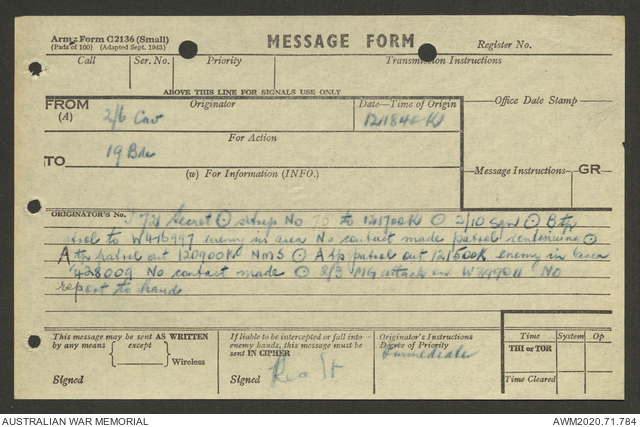 Army Form C2136 (Small)
(Pads of 100) (Adapted Sept. 1943)
MESSAGE FORM
Register No.
Call Ser. No. Priority Transmission Instructions
ABOVE THIS LINE FOR SIGNALS USE ONLY
FROM (A) Originator Date—Time of Origin Office Date Stamp
2/6 Cav 121840K
For Action
TO 19 Bde
(w) For Information (INFO.) Message Instructions GR
ORIGINATOR'S No.
Secret ⊙ sitrep No 75 to 121700K ⊙ 2/10 Sqn ⊙ B tp
patrol to W416997 enemy in area No contact made patrol continuing ⊙
A tp patrol out 120900K NMS ⊙ A tp patrol out 121500K enemy in area
428009 No contact made ⊙ MG attack on No
report to hand
This message may be sent AS WRITTEN by any means except Wireless
Signed
If liable to be intercepted or fall into enemy hands, this message must be sent IN CIPHER
Signed
Originator's Instructions
Degree of Priority
Immediate
Time System Op
THI or TOR
Time Cleared
AUSTRALIAN WAR MEMORIAL
AWM2020.71.784